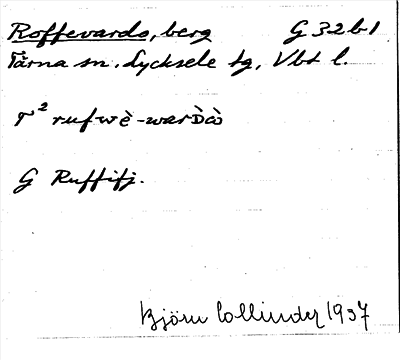 Roffevardo, berg G 32 b 1
Tärna sn. Lycksele lg, Vbt l.
T² rufwè-warD̀ò
G Ruffifj.
Björn Collinder 1937